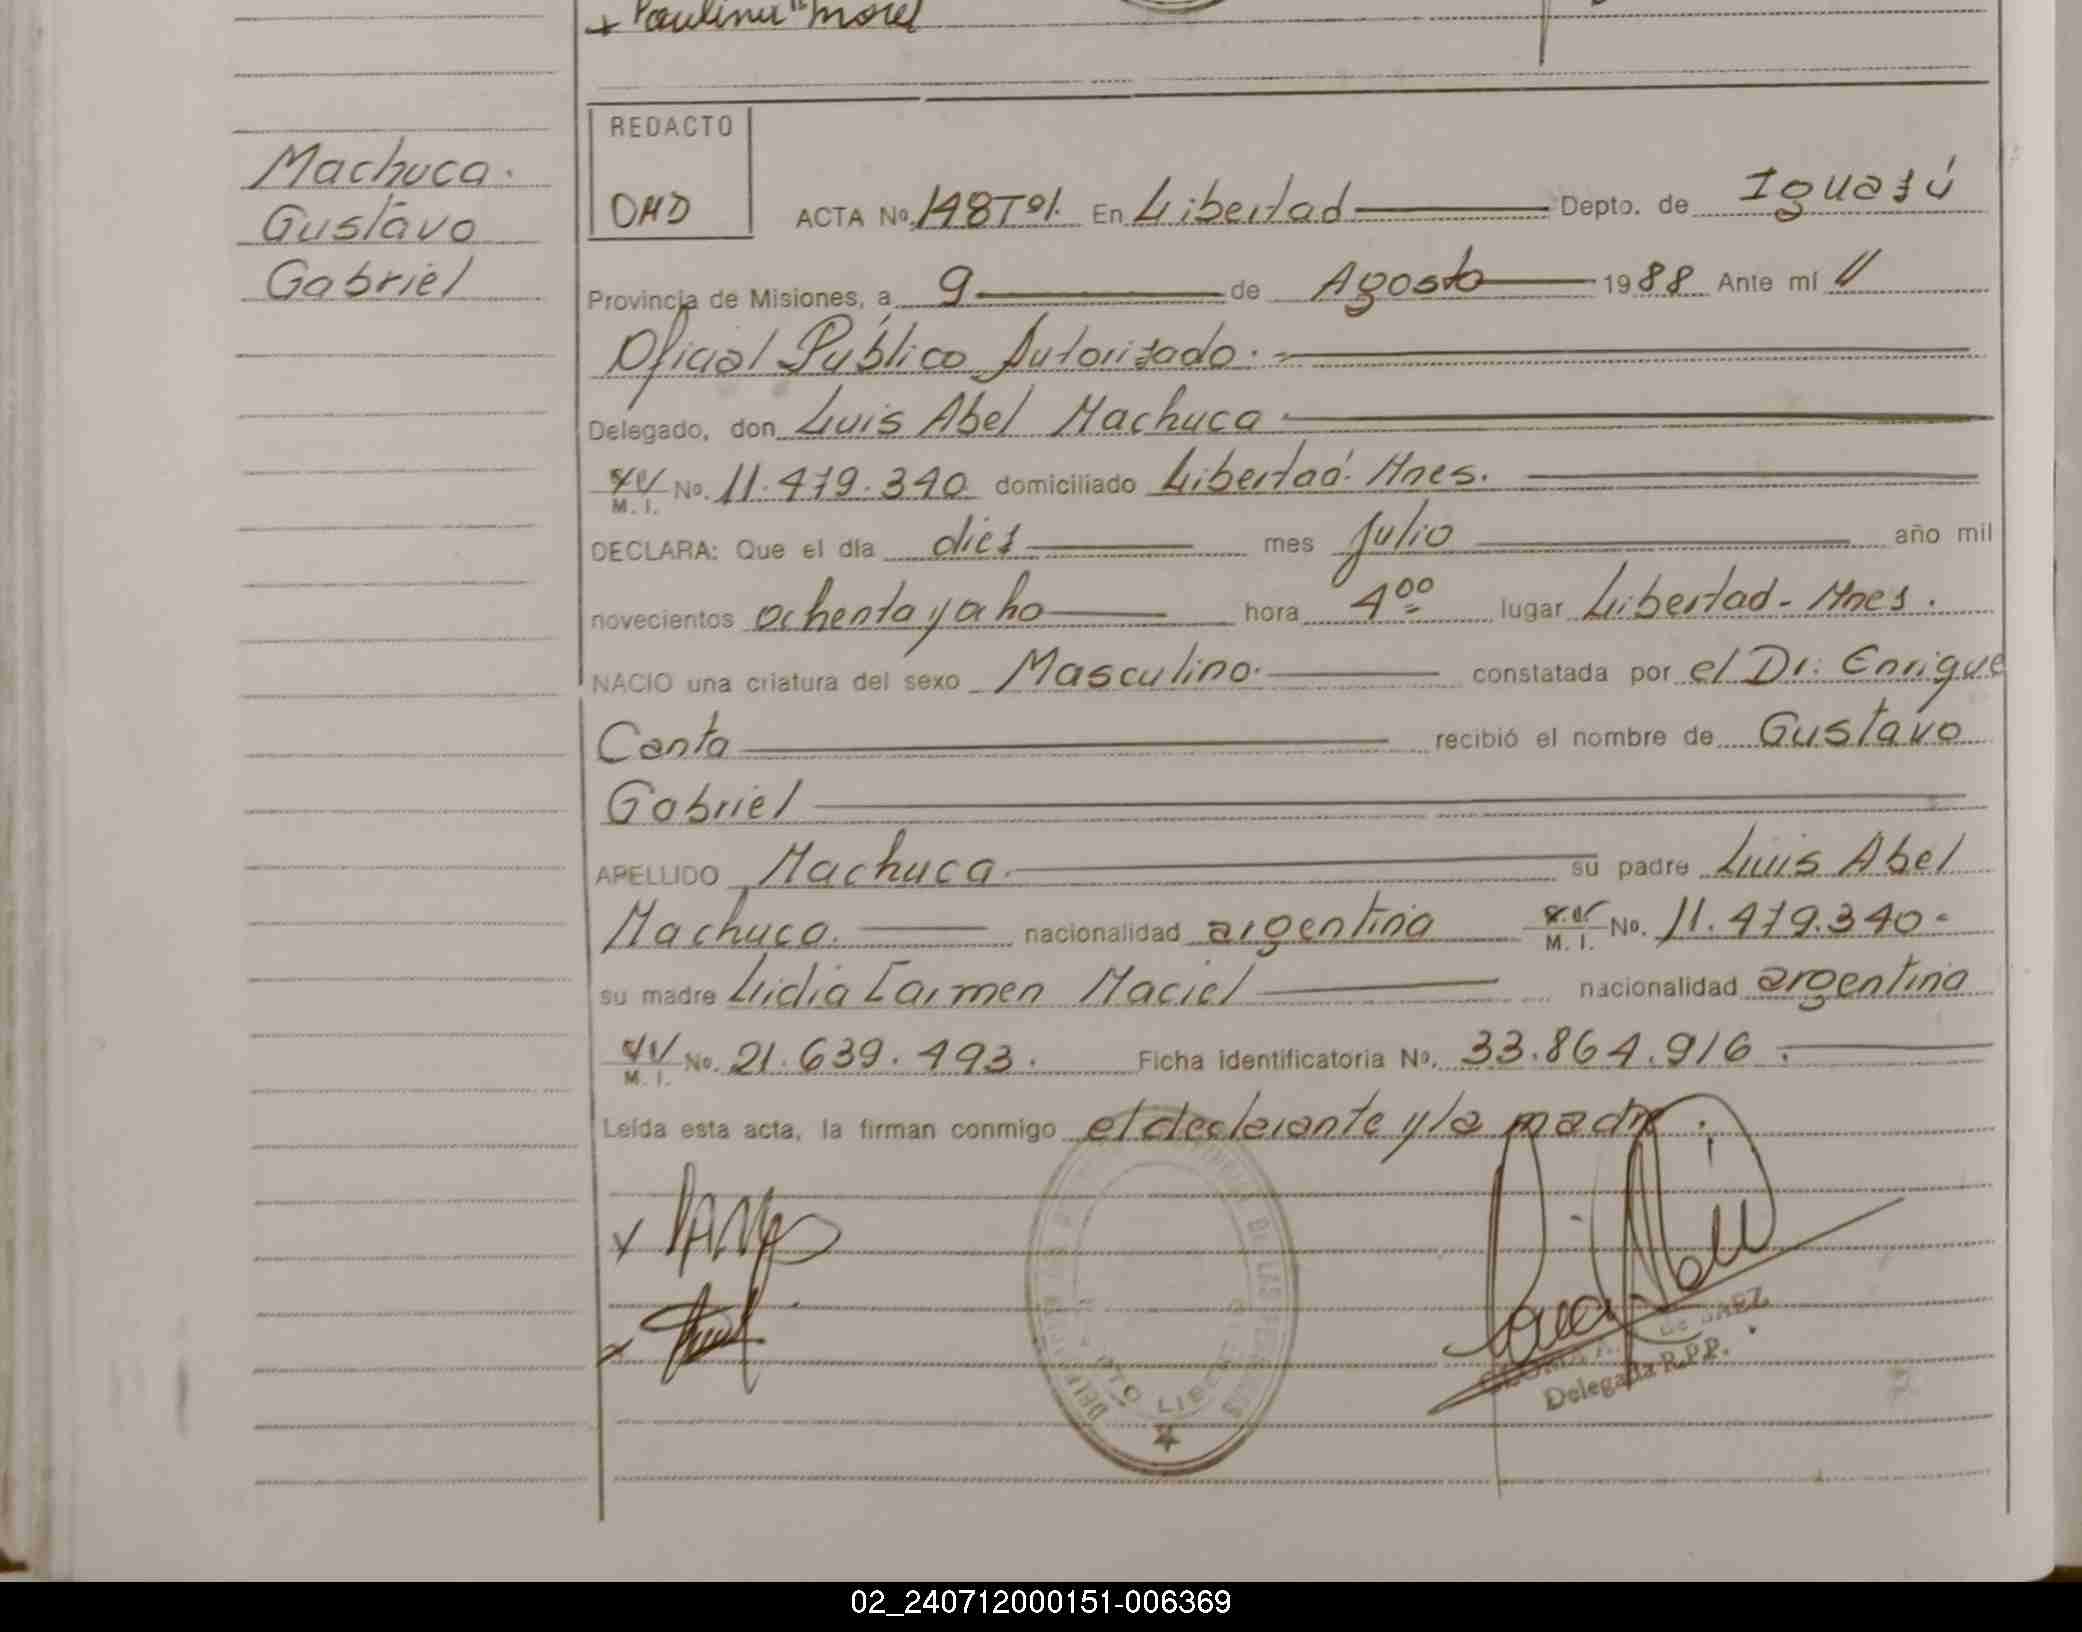 + Paulina Morel
Machuca.
Gustavo
Gabriel
REDACTO
OMD
ACTA No. 148Tº1. En Libertad Depto. de Iguazú
Provincia de Misiones, a 9 de Agosto 1988 Ante mí
Oficial Público Autorizado.
Delegado, don Luis Abel Machuca
M. I. No. 11.479.340 domiciliado Libertad. Mnes.
DECLARA: Que el día diez mes Julio año mil
novecientos ochenta y ocho hora 4⁰⁰ lugar Libertad - Mnes.
NACIO una criatura del sexo Masculino. constatada por el Dr. Enrique
Canta recibió el nombre de Gustavo
Gabriel
APELLIDO Machuca. su padre Luis Abel
Machuca. nacionalidad argentina M. I. No. 11.479.340.
su madre Lidia Carmen Maciel nacionalidad argentina
M. I. No. 21.639.493. Ficha identificatoria No. 33.864.916.
Leída esta acta, la firman conmigo el declarante y la madre.
DE LAS PERSONAS
PTO LIBERTAD
de BAEZ
Delegada R.P.P.
02_240712000151-006369